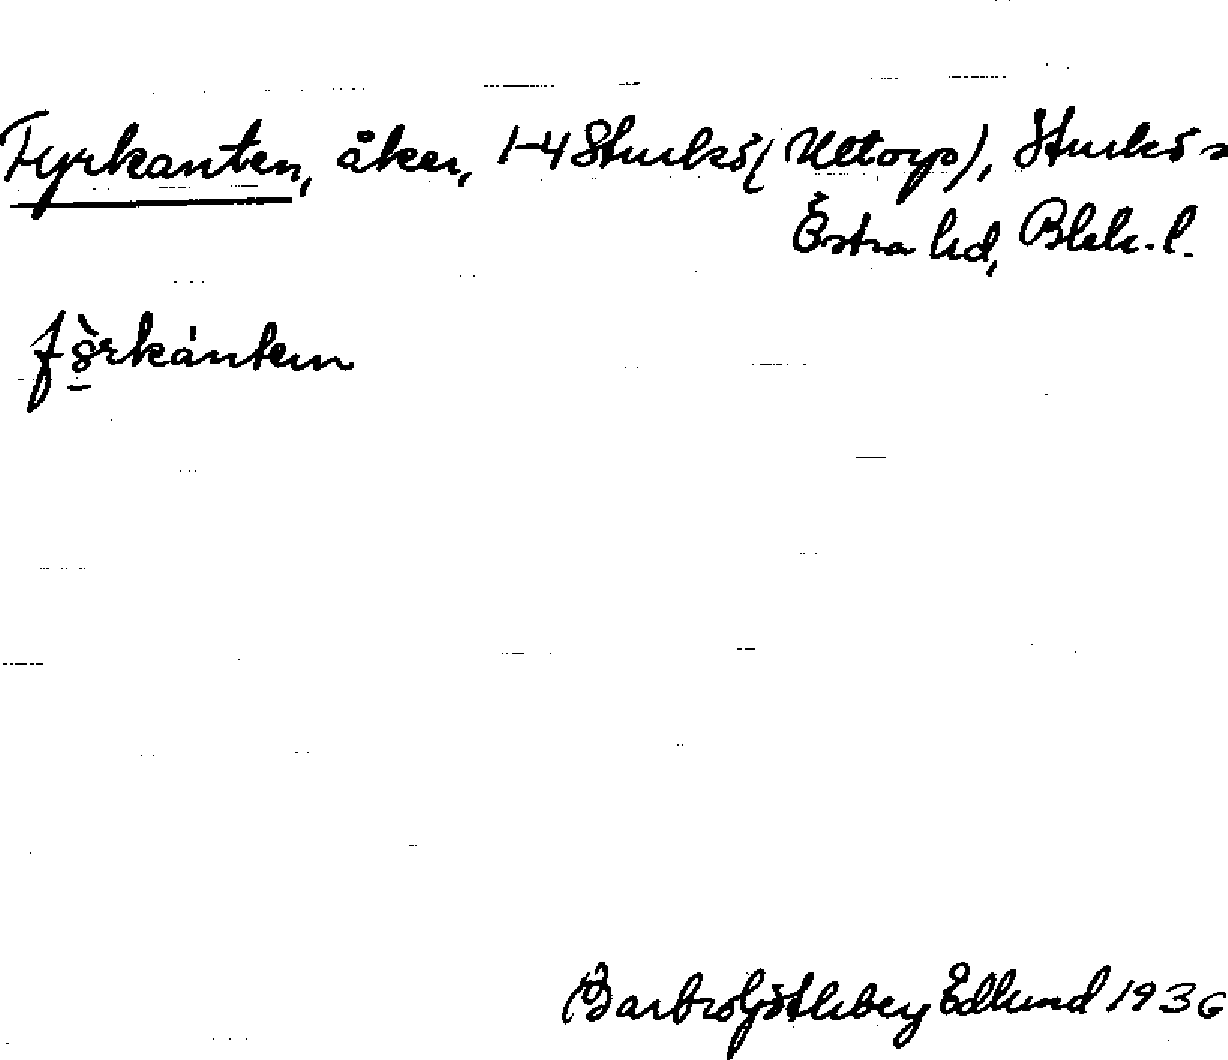 Fyrkanten, åker, 1-4 Sturkö (Uttorp), Sturkö s
Östra hd, Blek. l.
fö̀rkánten
Barbro Götlebey Edlund 1936